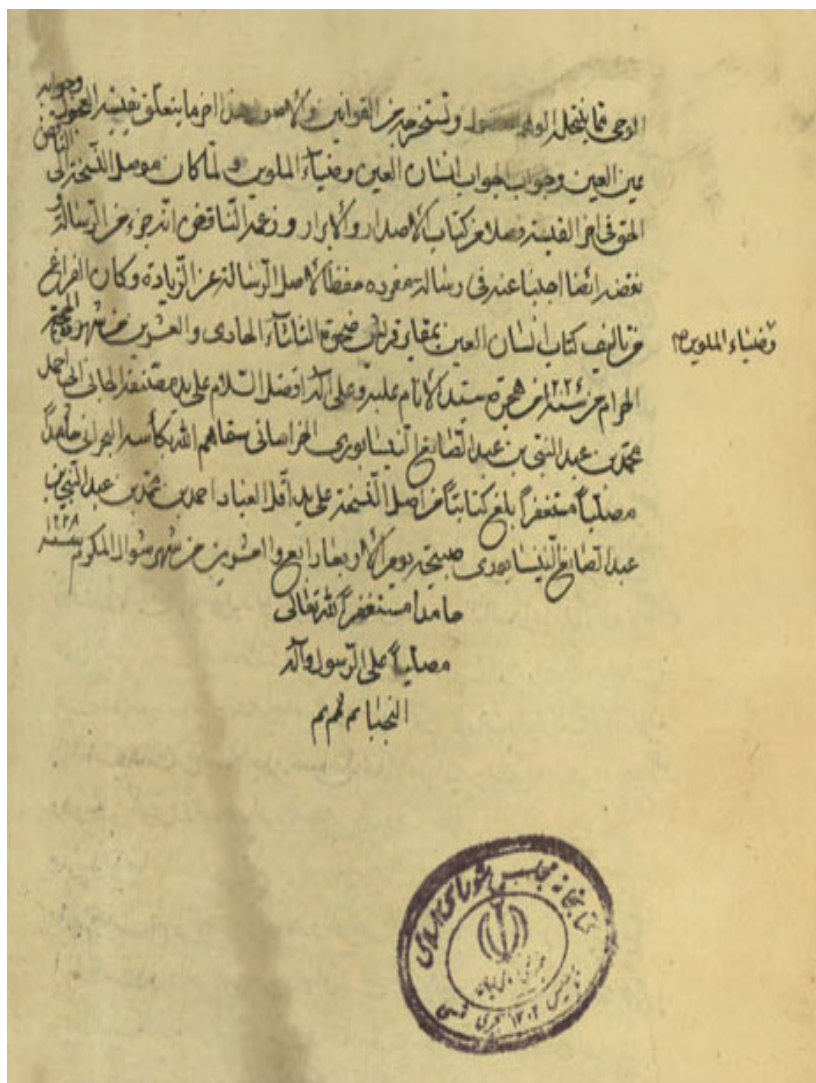 الوحی فما ینتحله الواو وتستخرجه من القوانین والاصول هذا اخر ما یتعلق بقبسة العجول وجوابه
عین العین وجواب الجواب انسان العین وضیآء الملوین ولما کان موصل النسخة الی الناقض
الحق فی اخر القبسة وصلا من کتاب الاصدار والایراد وزعمه الناقض انه جزء من الرسالة و
نقضه ایضا اجبنا عنه فی رسالة مفرده حفظا لاصل الرسالة عن الزیادة وکان الفراغ
من تالیف کتاب انسان العین بمقابر قریش ضحوة الثلثآء الحادی والعشرین من شهر ذی الحجة
وضیاء الملوین صح
الحرام من سنة ١٢٢٤ من هجرة سید الانام علیه وعلی آله افضل السلام علی ید مصنفه الجانی ابی احمد
محمد بن عبد النبی بن عبد الصانع النیسابوری الخراسانی سقاهم الله بکأسه البحرانی حامداً
مصلیاً مستغفراً بلغ کتابتاً من اصل النسخة علی ید اقل العباد احمد بن محمد بن عبد النبی بن
عبد الصانع النیسابوری صبیحة یوم الاربعا رابع والعشرین من شهر شوال المکرم سنة ١٢٢٨
حامداً مستغفراً لله تعالی
مصلیاً علی الرسول وآله
النجبا تم تم تم
کتابخانه مجلس شورای اسلامی
تاسیس ١٣٠٢ هجری شمسی